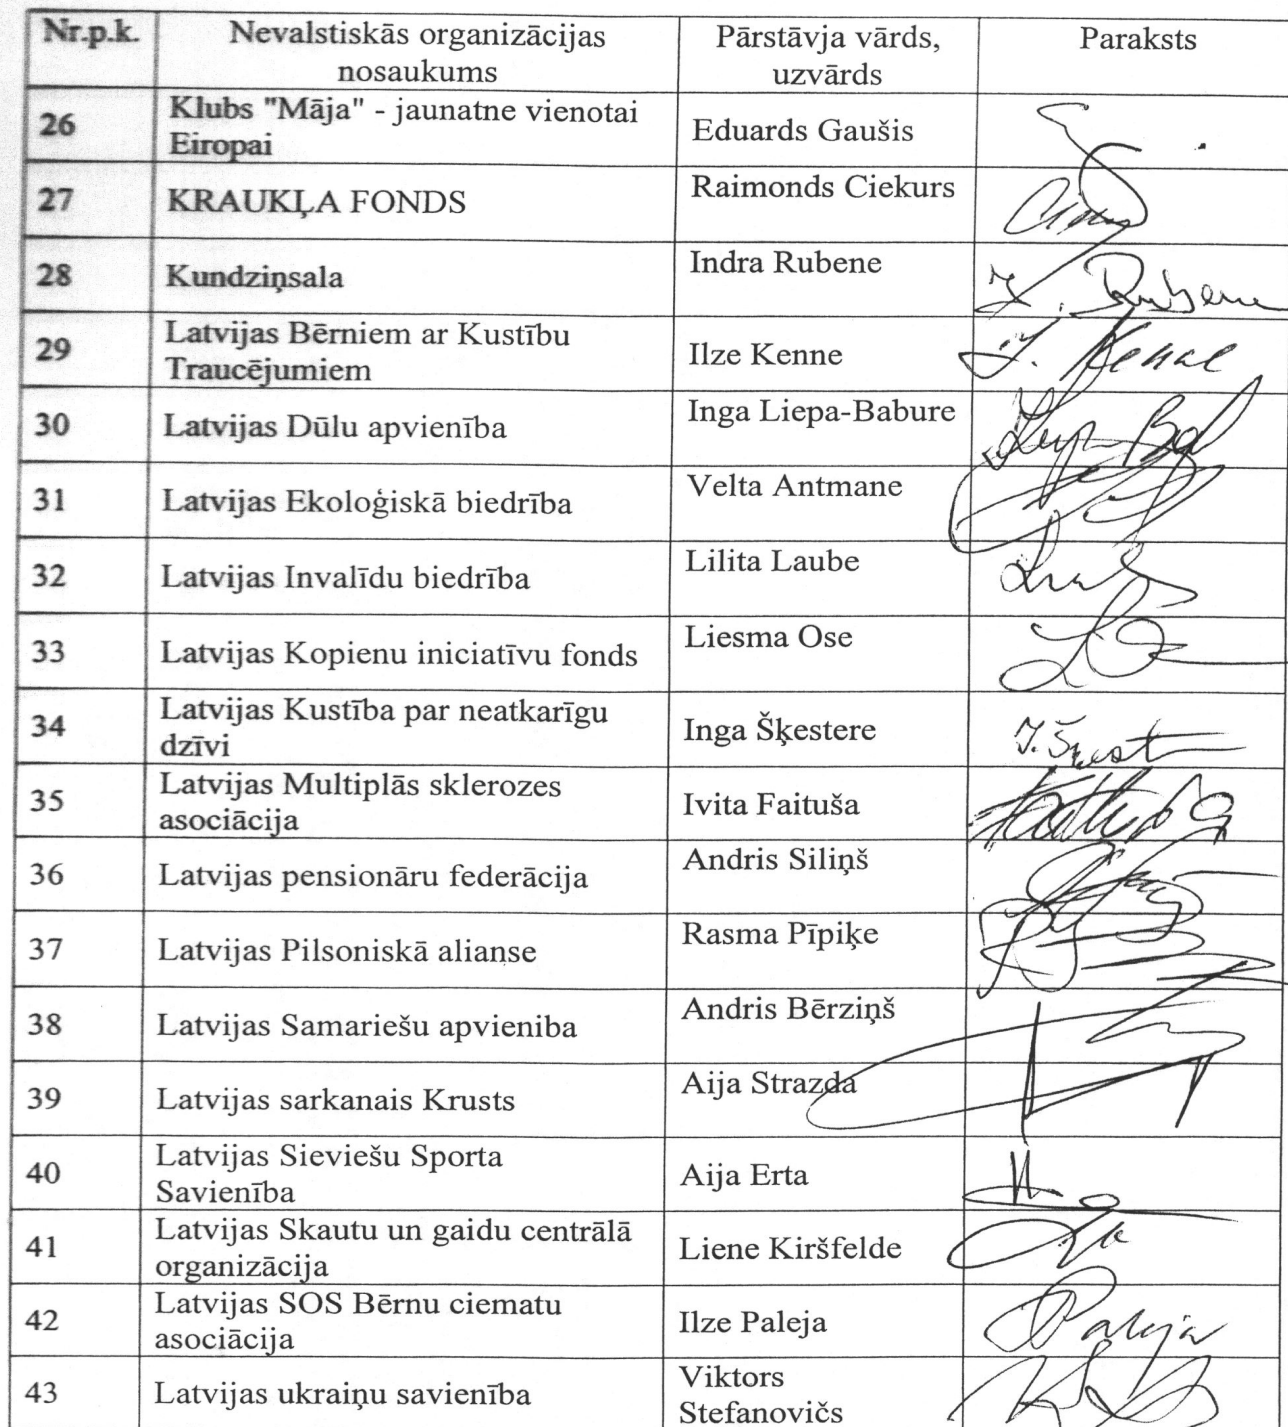 Nr.p.k. Nevalstiskās organizācijas nosaukums Pārstāvja vārds, uzvārds Paraksts
26 Klubs "Māja" - jaunatne vienotai Eiropai Eduards Gaušis
27 KRAUKĻA FONDS Raimonds Ciekurs
28 Kundziņsala Indra Rubene I. Rubene
29 Latvijas Bērniem ar Kustību Traucējumiem Ilze Kenne I. Kenne
30 Latvijas Dūlu apvienība Inga Liepa-Babure
31 Latvijas Ekoloģiskā biedrība Velta Antmane
32 Latvijas Invalīdu biedrība Lilita Laube
33 Latvijas Kopienu iniciatīvu fonds Liesma Ose
34 Latvijas Kustība par neatkarīgu dzīvi Inga Šķestere
35 Latvijas Multiplās sklerozes asociācija Ivita Faituša
36 Latvijas pensionāru federācija Andris Siliņš
37 Latvijas Pilsoniskā alianse Rasma Pīpiķe
38 Latvijas Samariešu apvieniba Andris Bērziņš
39 Latvijas sarkanais Krusts Aija Strazda
40 Latvijas Sieviešu Sporta Savienība Aija Erta
41 Latvijas Skautu un gaidu centrālā organizācija Liene Kiršfelde
42 Latvijas SOS Bērnu ciematu asociācija Ilze Paleja Paleja
43 Latvijas ukraiņu savienība Viktors Stefanovičs